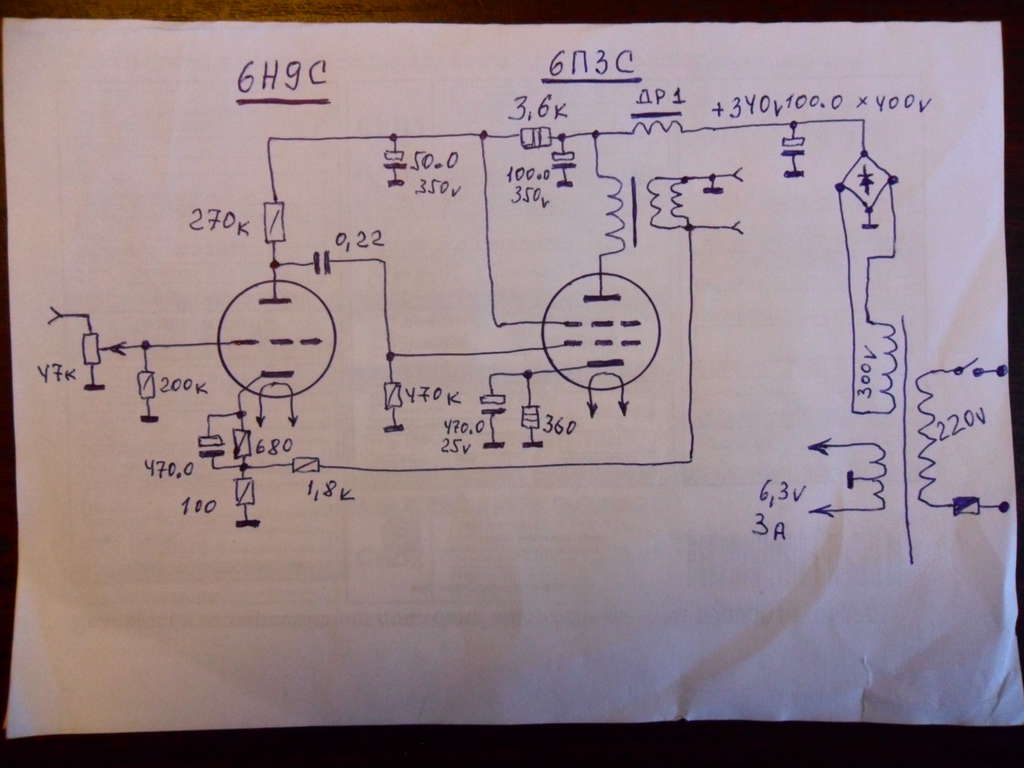 6Н9С
6П3С
3,6к
ДР1
+340v
100.0 × 400v
50.0
350v
100.0
350v
270к
0,22
47к
200к
470к
470.0
25v
360
300v
220v
680
470.0
1,8к
100
6,3v
3А